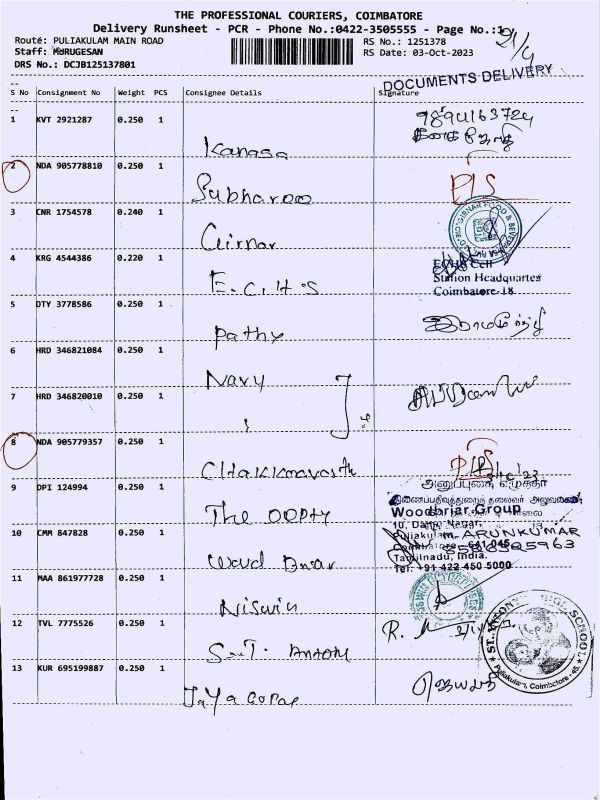 THE PROFESSIONAL COURIERS, COIMBATORE
Delivery Runsheet - PCR - Phone No.:0422-3505555 - Page No.:1
Route: PULIAKULAM MAIN ROAD
RS No.: 1251378
Staff: MURUGESAN
RS Date: 03-Oct-2023
DRS No.: DCJB125137801
DOCUMENTS DELIVERY
S No Consignment No Weight PCS Consignee Details Signature
1 KVT 2921287 0.250 1
9894163724
Kanaga
2 NDA 905778810 0.250 1
3 CNR 1754578 0.240 1
Girnar
4 KRG 4544386 0.220 1
Station Headquartes
Coimbatore-18
E.C.H.S
5 DTY 3778586 0.250 1
Pathy
6 HRD 346821084 0.250 1
Navy
7 HRD 346820010 0.250 1
8 NDA 905779357 0.250 1
9 DPI 124994 0.250 1
அனுப்புகை எழுத்தர்
Woodbriar Group
The OOPTY
Puliakulam,
ARUNKUMAR
10 CMM 847828 0.250 1
Coimbatore - 641 045
Tamilnadu, India.
Tel: +91 422 450 5000
11 MAA 861977728 0.250 1
12 TVL 7775526 0.250 1
Puliakulam, Coimbatore - 45.
13 KUR 695199887 0.250 1
Jaya Gopal